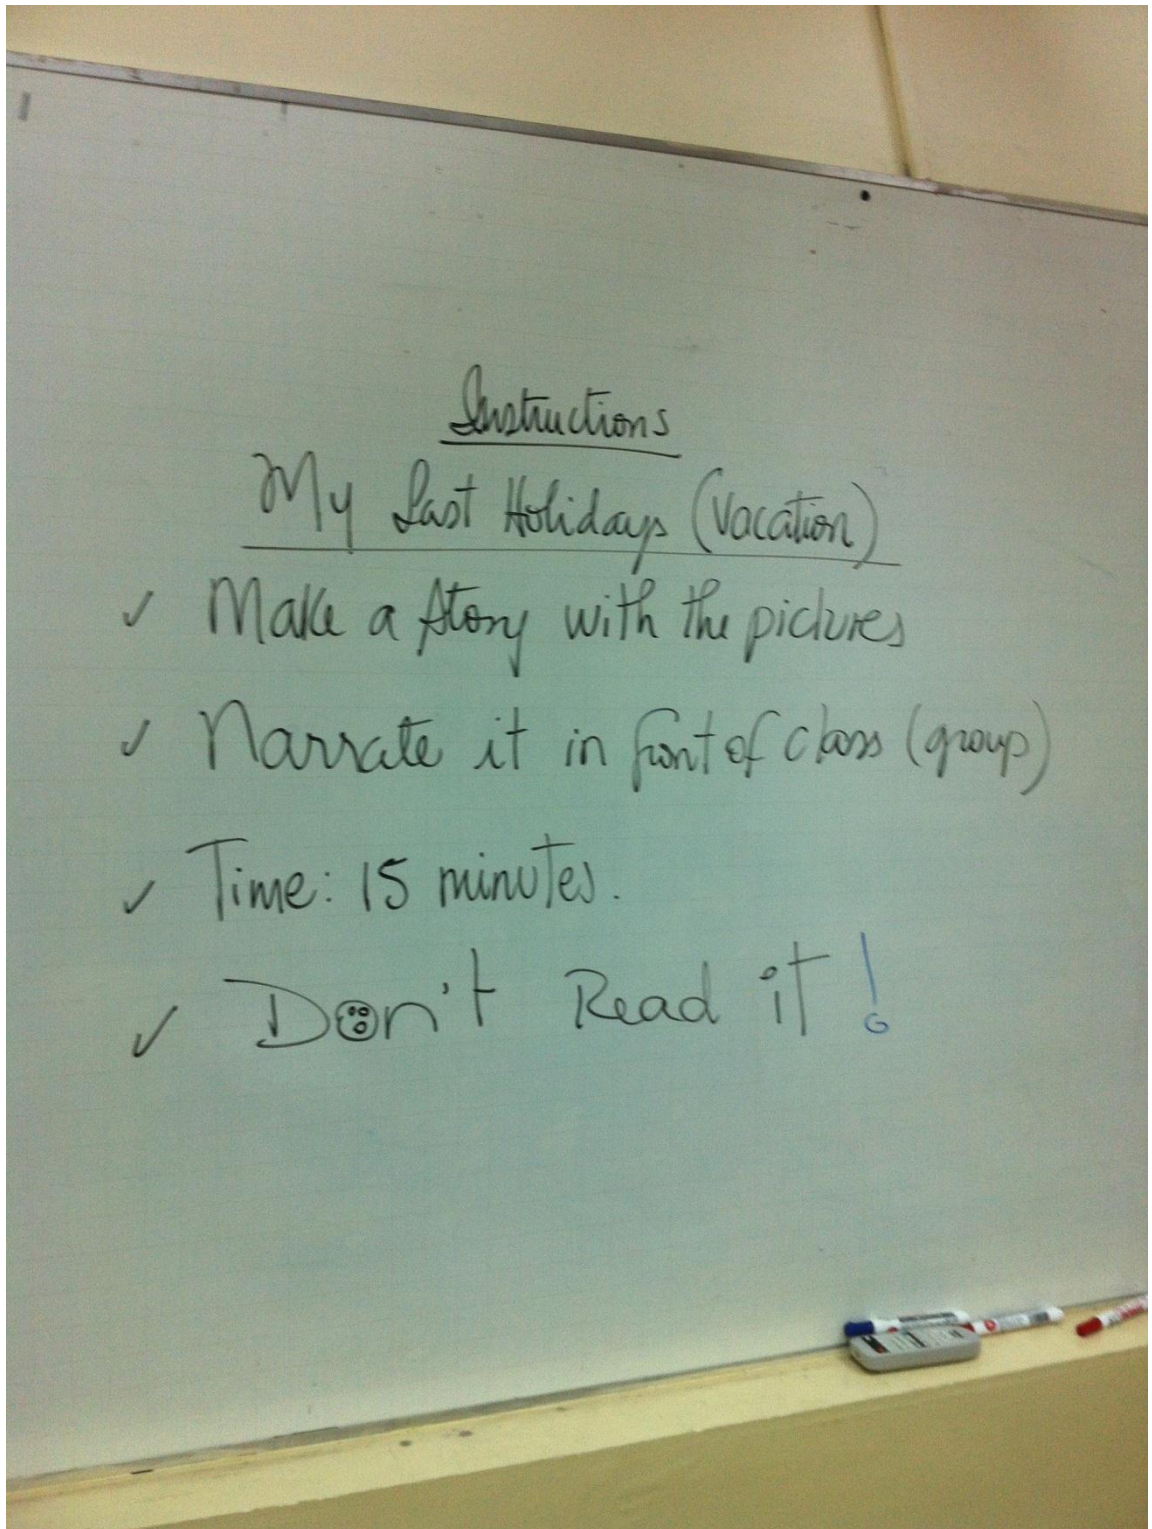 Instructions
My Last Holidays (Vacation)
✓ Make a story with the pictures
✓ Narrate it in front of class (group)
✓ Time: 15 minutes.
✓ Don't Read it!